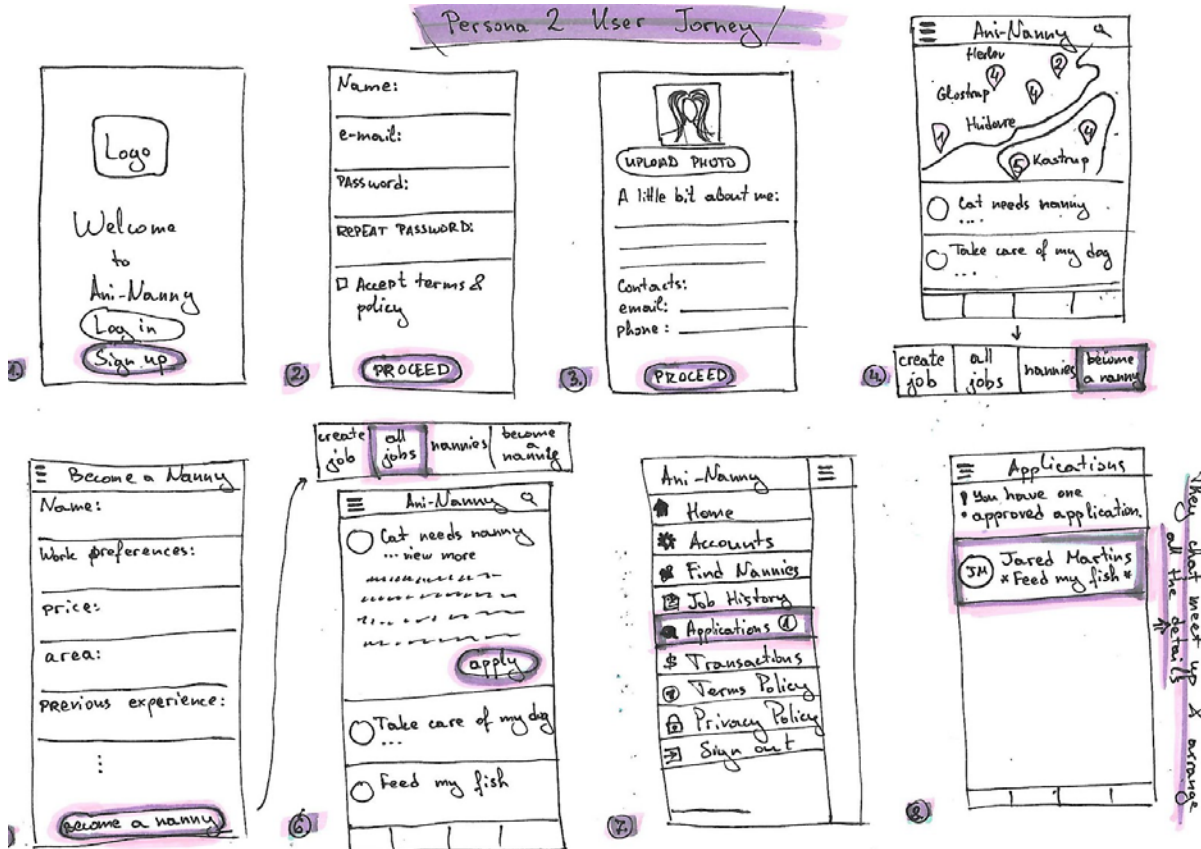 Persona 2 User Jorney
Logo
Welcome
to
Ani-Nanny
Log in
Sign up
1.
Name:
e-mail:
PASSword:
REPEAT PASSWORD:
Accept terms &
policy
PROCEED
2.
UPLOAD PHOTO
A little bit about me:
Contacts:
email:
phone:
PROCEED
3.
Ani-Nanny
Herlev
2
4
Glostrup
4
Hvidovre
1
4
5
Kastrup
Cat needs nanny
....
Take care of my dog
...
4.
create
job
all
jobs
nannies
become
a nanny
Become a Nanny
Name:
Work preferences:
price:
area:
previous experience:
become a nanny
create
job
all
jobs
nannies
become
a
nannie
Ani-Nanny
Cat needs nanny
... view more
apply
Take care of my dog
...
Feed my fish
6.
Ani-Nanny
Home
Accounts
Find Nannies
Job History
Applications 1
$ Transactions
Terms Policy
Privacy Policy
Sign out
7.
Applications
! You have one
approved application.
JM
Jared Martins
*Feed my fish*
8.
They chat meet up & arrange
all the details